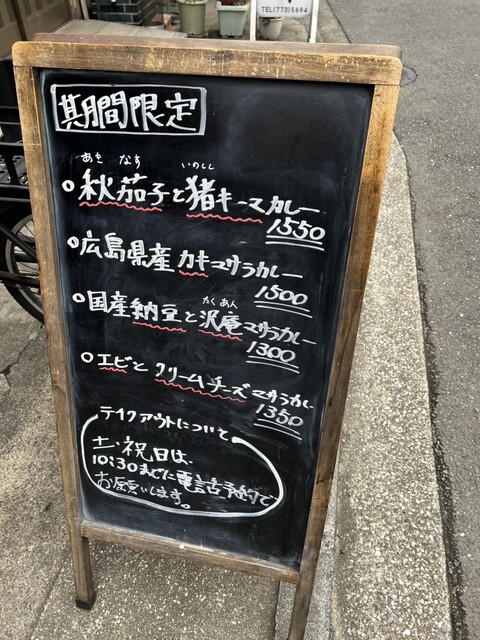 TEL(773)5694
期間限定
あき なす いのしし
○秋茄子と猪キーマカレー
1550
○広島県産カキマサラカレー
1500
たくあん
○国産納豆と沢庵マサラカレー
1300
○エビとクリームチーズマサラカレー
1350
テイクアウトについて
土・祝日は、
10:30までに電話予約で
お願いします。